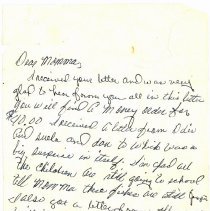 Dear Mamma,
I received your letter and was very
glad to hear from you all in this letter
you will find a Money order for
$10.00 I received a letter from
and and don to which was a
big surprise in itself. I'm glad all
the children are still going to school
Mamma these are still
I also got a letter from